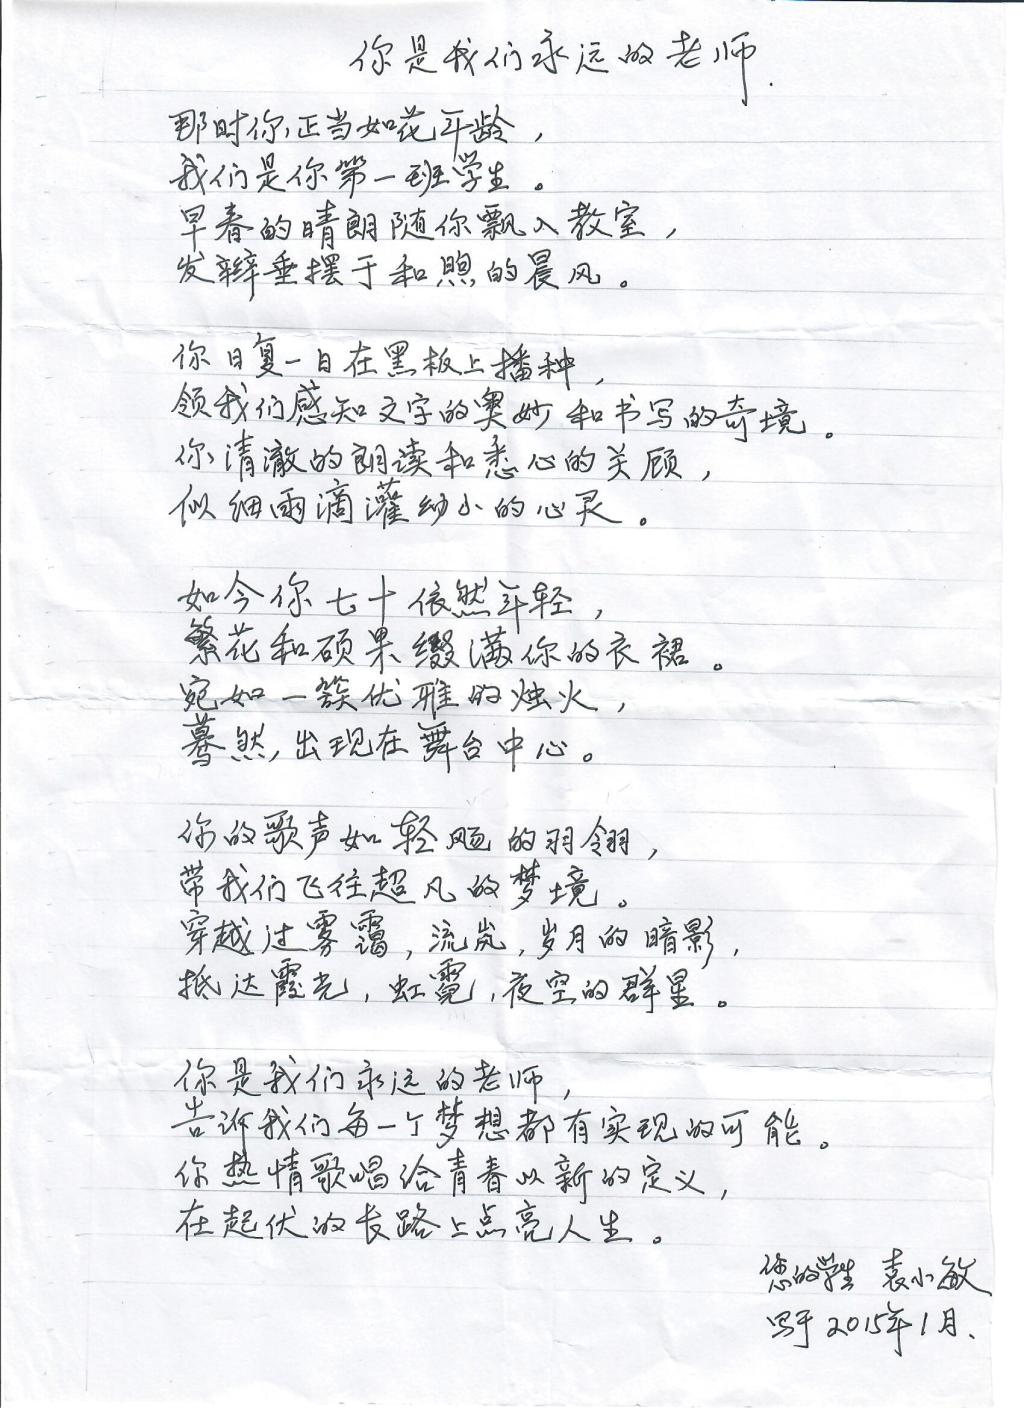 你是我们永远的老师.
那时你正当如花年龄，
我们是你第一班学生。
早春的晴朗随你飘入教室，
发辫垂摆于和煦的晨风。
你日复一日在黑板上播种，
领我们感知文字的奥妙和书写的奇境。
你清澈的朗读和悉心的关顾，
似细雨滴灌幼小的心灵。
如今你七十依然年轻，
繁花和硕果缀满你的衣裙。
宛如一簇优雅的烛火，
蓦然，出现在舞台中心。
你的歌声如轻飏的羽翎，
带我们飞往超凡的梦境。
穿越过雾霭，流岚，岁月的暗影，
抵达霞光，虹霓，夜空的群星。
你是我们永远的老师，
告诉我们每一个梦想都有实现的可能。
你热情歌唱给青春以新的定义，
在起伏的长路上点亮人生。
您的学生 袁小敏
写于2015年1月.